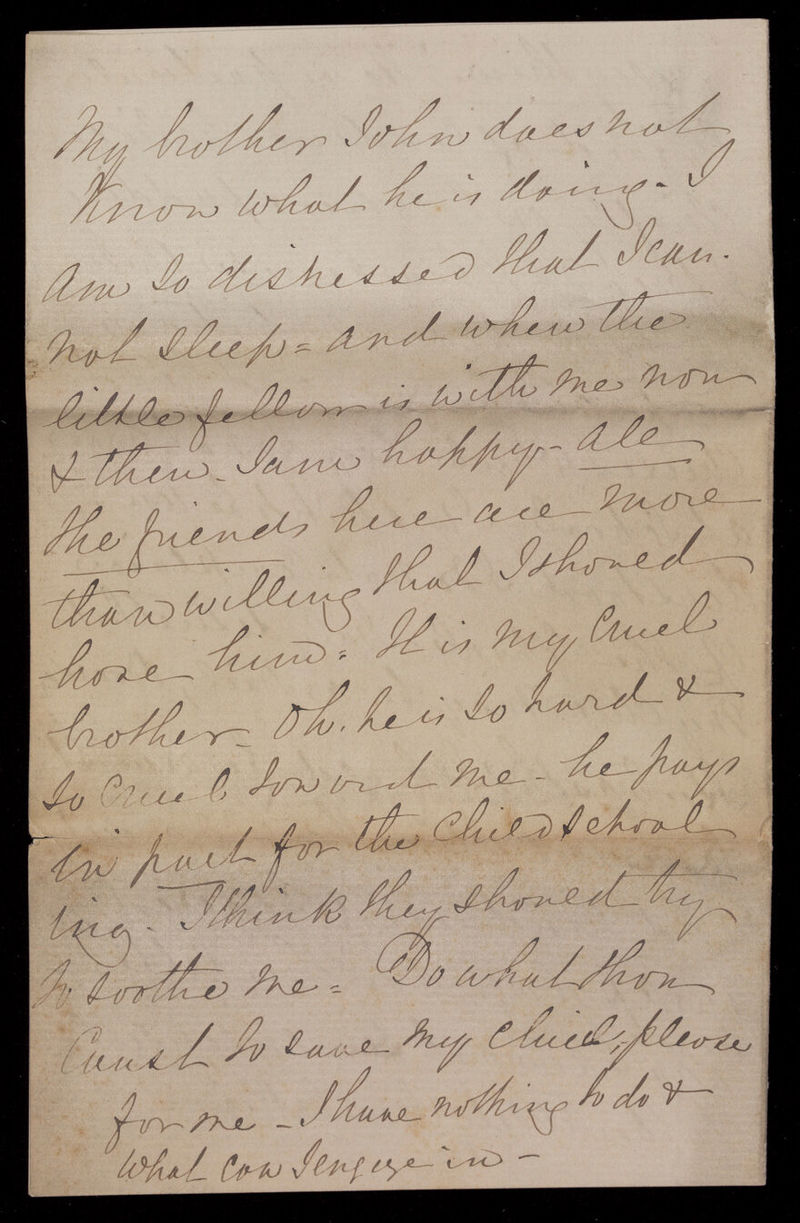 My brother John does not
Know what he is doing - I
am so distressed that I can-
not sleep = and when the
little fellow is with me now
& then - I am happy - all
the friends here are more
than willing that I should
have him = It is my cruel
brother - Oh. he is so hard &
so cruel toward me - he pays
in part for the child school
ing - I think they should try
to soothe me = Do what thou
Canst to save my child, please
for me - I have nothing to do &
what can I engage in -